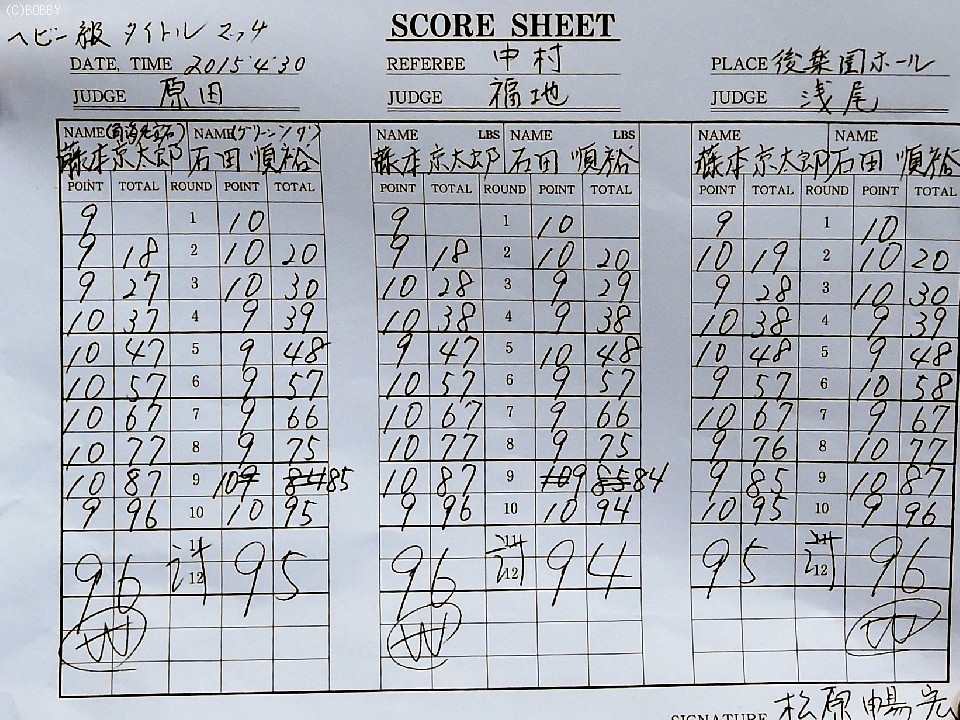 (C)BOBBY
SCORE SHEET
ヘビー級 タイトル マッチ
DATE, TIME 2015 4 30 REFEREE 中村 PLACE 後楽園ホール
JUDGE 原田 JUDGE 福地 JUDGE 浅尾
NAME (角海老宝石) NAME (グリーンツダ) NAME LBS NAME LBS NAME NAME
藤本京太郎 石田順裕 藤本京太郎 石田順裕 藤本京太郎 石田順裕
POINT TOTAL ROUND POINT TOTAL POINT TOTAL ROUND POINT TOTAL POINT TOTAL ROUND POINT TOTAL
9 1 10 9 1 10 9 1 10
9 18 2 10 20 9 18 2 10 20 10 19 2 10 20
9 27 3 10 30 10 28 3 9 29 9 28 3 10 30
10 37 4 9 39 10 38 4 9 38 10 38 4 9 39
10 47 5 9 48 9 47 5 10 48 10 48 5 9 48
10 57 6 9 57 10 57 6 9 57 9 57 6 10 58
10 67 7 9 66 10 67 7 9 66 10 67 7 9 67
10 77 8 9 75 10 77 8 9 75 9 76 8 10 77
10 87 9 10 9 84 85 10 87 9 10 9 85 84 9 85 9 10 87
9 96 10 10 95 9 96 10 10 94 10 95 10 9 96
11 11 11
96 計 95 96 計 94 95 計 96
12 12 12
W W W
SIGNATURE 松原暢宏